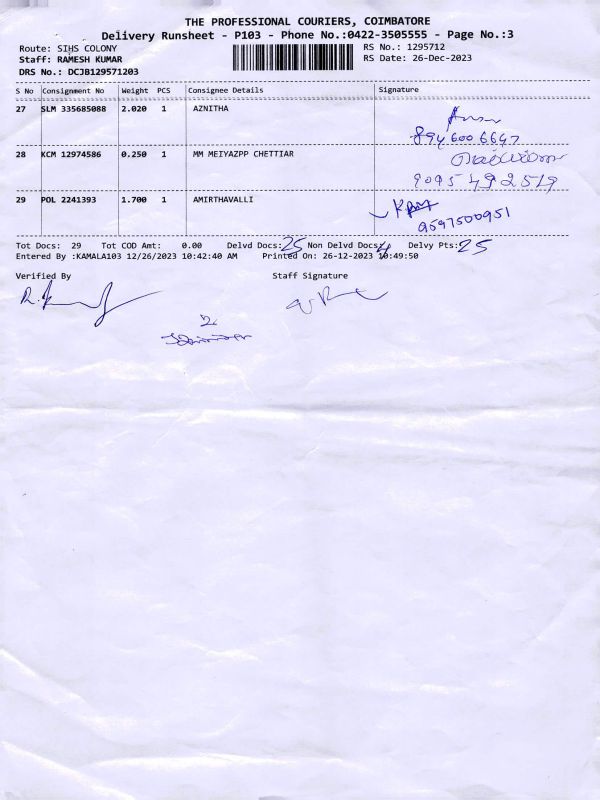 THE PROFESSIONAL COURIERS, COIMBATORE
Delivery Runsheet - P103 - Phone No.:0422-3505555 - Page No.:3
Route: SIHS COLONY RS No.: 1295712
Staff: RAMESH KUMAR RS Date: 26-Dec-2023
DRS No.: DCJB129571203
S No Consignment No Weight PCS Consignee Details Signature
27 SLM 335685088 2.020 1 AZNITHA
8946006647
28 KCM 12974586 0.250 1 MM MEIYAZPP CHETTIAR
9095492519
29 POL 2241393 1.700 1 AMIRTHAVALLI
9597500951
Tot Docs: 29 Tot COD Amt: 0.00 Delvd Docs: 25 Non Delvd Docs: 4 Delvy Pts: 25
Entered By :KAMALA103 12/26/2023 10:42:40 AM Printed On: 26-12-2023 10:49:50
Verified By Staff Signature